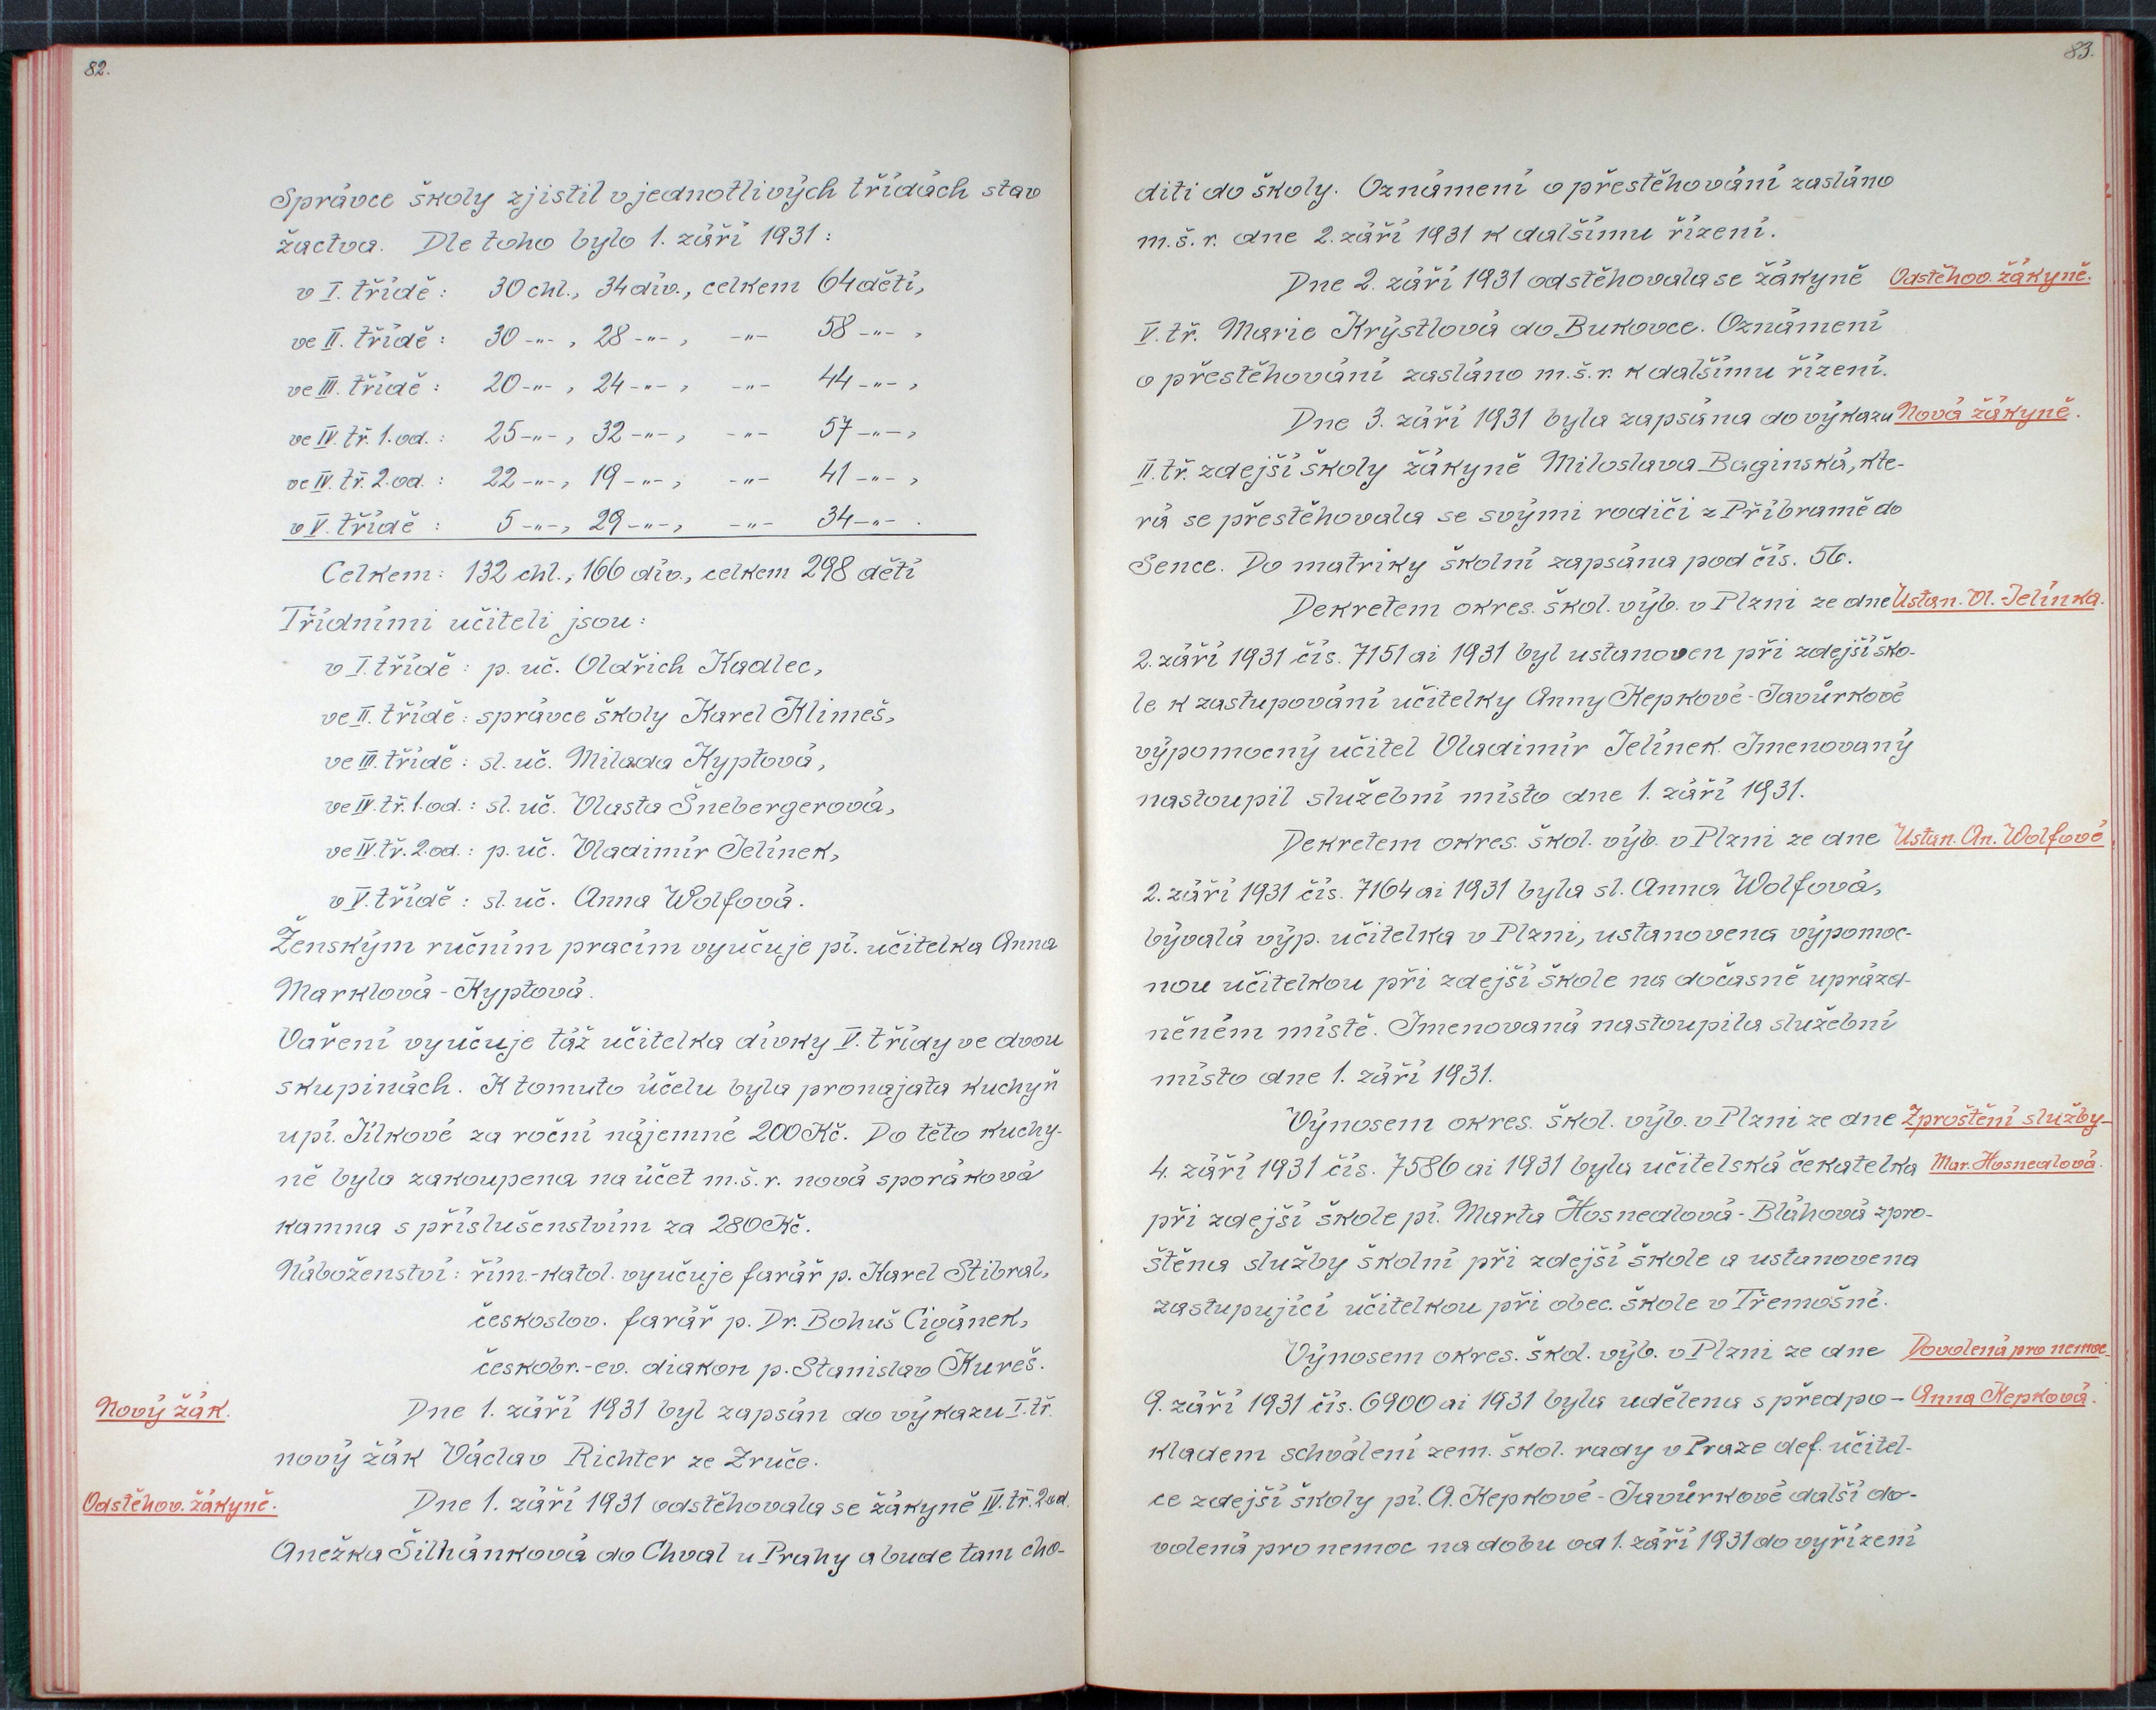 82.
Správce školy zjistil v jednotlivých třídách stav
žactva. Dle toho bylo 1. září 1931:
v I. třídě: 30 chl., 34 dív., celkem 64 dětí,
ve II. třídě: 30 -"- , 28 -"- , -"- 58 -"- ,
ve III. třídě: 20 -"- , 24 -"- , -"- 44 -"- ,
ve IV. tř. 1. od.: 25 -"- , 32 -"- , -"- 57 -"- ,
ve IV. tř. 2. od.: 22 -"- , 19 -"- , -"- 41 -"- ,
v V. třídě: 5 -"- , 29 -"- , -"- 34 -"- .
Celkem: 132 chl., 166 dív., celkem 298 dětí
Třídními učiteli jsou:
v I. třídě: p. uč. Oldřich Kadlec,
ve II. třídě: správce školy Karel Klimeš,
ve III. třídě: sl. uč. Milada Kyptová,
ve IV. tř. 1. od.: sl. uč. Vlasta Šnebergerová,
ve IV. tř. 2. od.: p. uč. Vladimír Jelínek,
v V. třídě: sl. uč. Anna Wolfová.
Ženským ručním pracím vyučuje pí. učitelka Anna
Marklová-Kyptová.
Vaření vyučuje táž učitelka dívky V. třídy ve dvou
skupinách. K tomuto účelu byla pronajata kuchyň
u pí. Jílkové za roční nájemné 200 Kč. Do této kuchy-
ně byla zakoupena na účet m. š. r. nová sporáková
kamna s příslušenstvím za 280 Kč.
Náboženství: řím.-katol. vyučuje farář p. Karel Stibral,
českoslov. farář p. Dr. Bohuš Cigánek,
českobr.-ev. diakon p. Stanislav Kureš.
Nový žák.
Dne 1. září 1931 byl zapsán do výkazu I. tř.
nový žák Václav Richter ze Zruče.
Odstěhov. žákyně.
Dne 1. září 1931 odstěhovala se žákyně IV. tř. 2 od.
Anežka Šilhánková do Chval u Prahy a bude tam cho-
83.
diti do školy. Oznámení o přestěhování zasláno
m. š. r. dne 2. září 1931 k dalšímu řízení.
Dne 2. září 1931 odstěhovala se žákyně
Odstěhov. žákyně.
V. tř. Marie Krýstlová do Bukovce. Oznámení
o přestěhování zasláno m. š. r. k dalšímu řízení.
Dne 3. září 1931 byla zapsána do výkazu
Nová žákyně.
II. tř. zdejší školy žákyně Miloslava Baginská, kte-
rá se přestěhovala se svými rodiči z Příbramě do
Sence. Do matriky školní zapsána pod čís. 56.
Dekretem okres. škol. výb. v Plzni ze dne
Ustan. Vl. Jelínka.
2. září 1931 čís. 7151 ai 1931 byl ustanoven při zdejší ško-
le k zastupování učitelky Anny Kepkové-Javůrkové
výpomocný učitel Vladimír Jelínek. Jmenovaný
nastoupil služební místo dne 1. září 1931.
Dekretem okres. škol. výb. v Plzni ze dne
Ustan. An. Wolfové
2. září 1931 čís. 7164 ai 1931 byla sl. Anna Wolfová,
bývalá výp. učitelka v Plzni, ustanovena výpomoc-
nou učitelkou při zdejší škole na dočasně uprázd-
něném místě. Jmenovaná nastoupila služební
místo dne 1. září 1931.
Výnosem okres. škol. výb. v Plzni ze dne
Zproštění služby-
4. září 1931 čís. 7586 ai 1931 byla učitelská čekatelka
Mar. Hosnedlová.
při zdejší škole pí. Marta Hosnedlová-Bláhová zpro-
štěna služby školní při zdejší škole a ustanovena
zastupující učitelkou při obec. škole v Třemošné.
Výnosem okres. škol. výb. v Plzni ze dne
Dovolená pro nemoc-
9. září 1931 čís. 6900 ai 1931 byla udělena s předpo-
Anna Kepková.
kladem schválení zem. škol. rady v Praze def. učitel-
ce zdejší školy pí. A. Kepkové-Javůrkové další do-
volená pro nemoc na dobu od 1. září 1931 do vyřízení